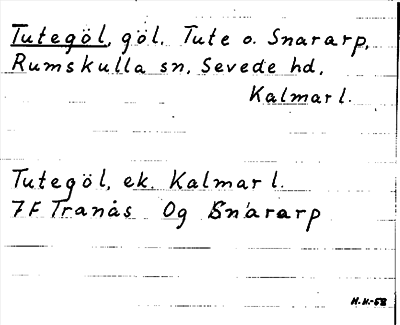 Tutegöl, göl, Tute o. Snararp,
Rumskulla sn, Sevede hd,
Kalmar l.
Tutegöl, ek. Kalmar l.
7F Tranås Og Snararp